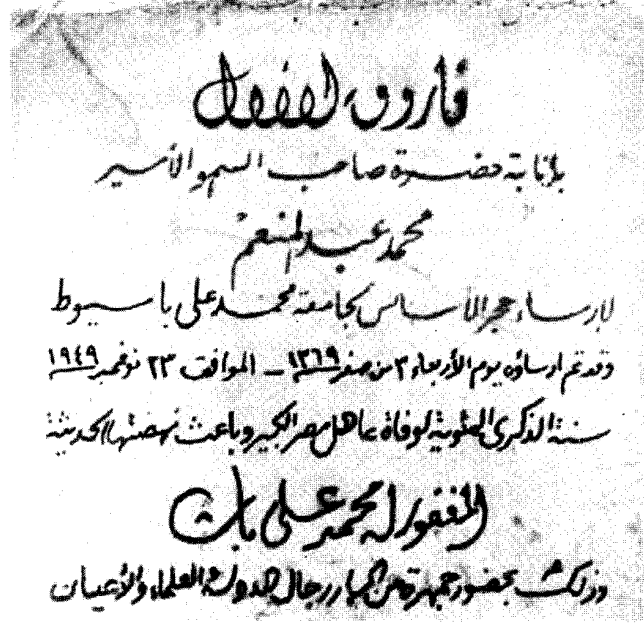 فاروق الأول
بإنابة حضرة صاحب السمو الأمير
محمد عبد المنعم
لإرساء حجر الأساس لجامعة محمد علي بأسيوط
وقد تم ارساؤه يوم الأربعاء ٣ من صفر ١٣٦٩ – الموافق ٢٣ نوفمبر ١٩٤٩
سنة الذكرى المئوية لوفاة عاهل مصر الكبير وباعث نهضتها الحديثة
المغفور له محمد علي باشا
وذلك بحضور جمهرة من كبار رجال الدولة والعلماء والأعيان